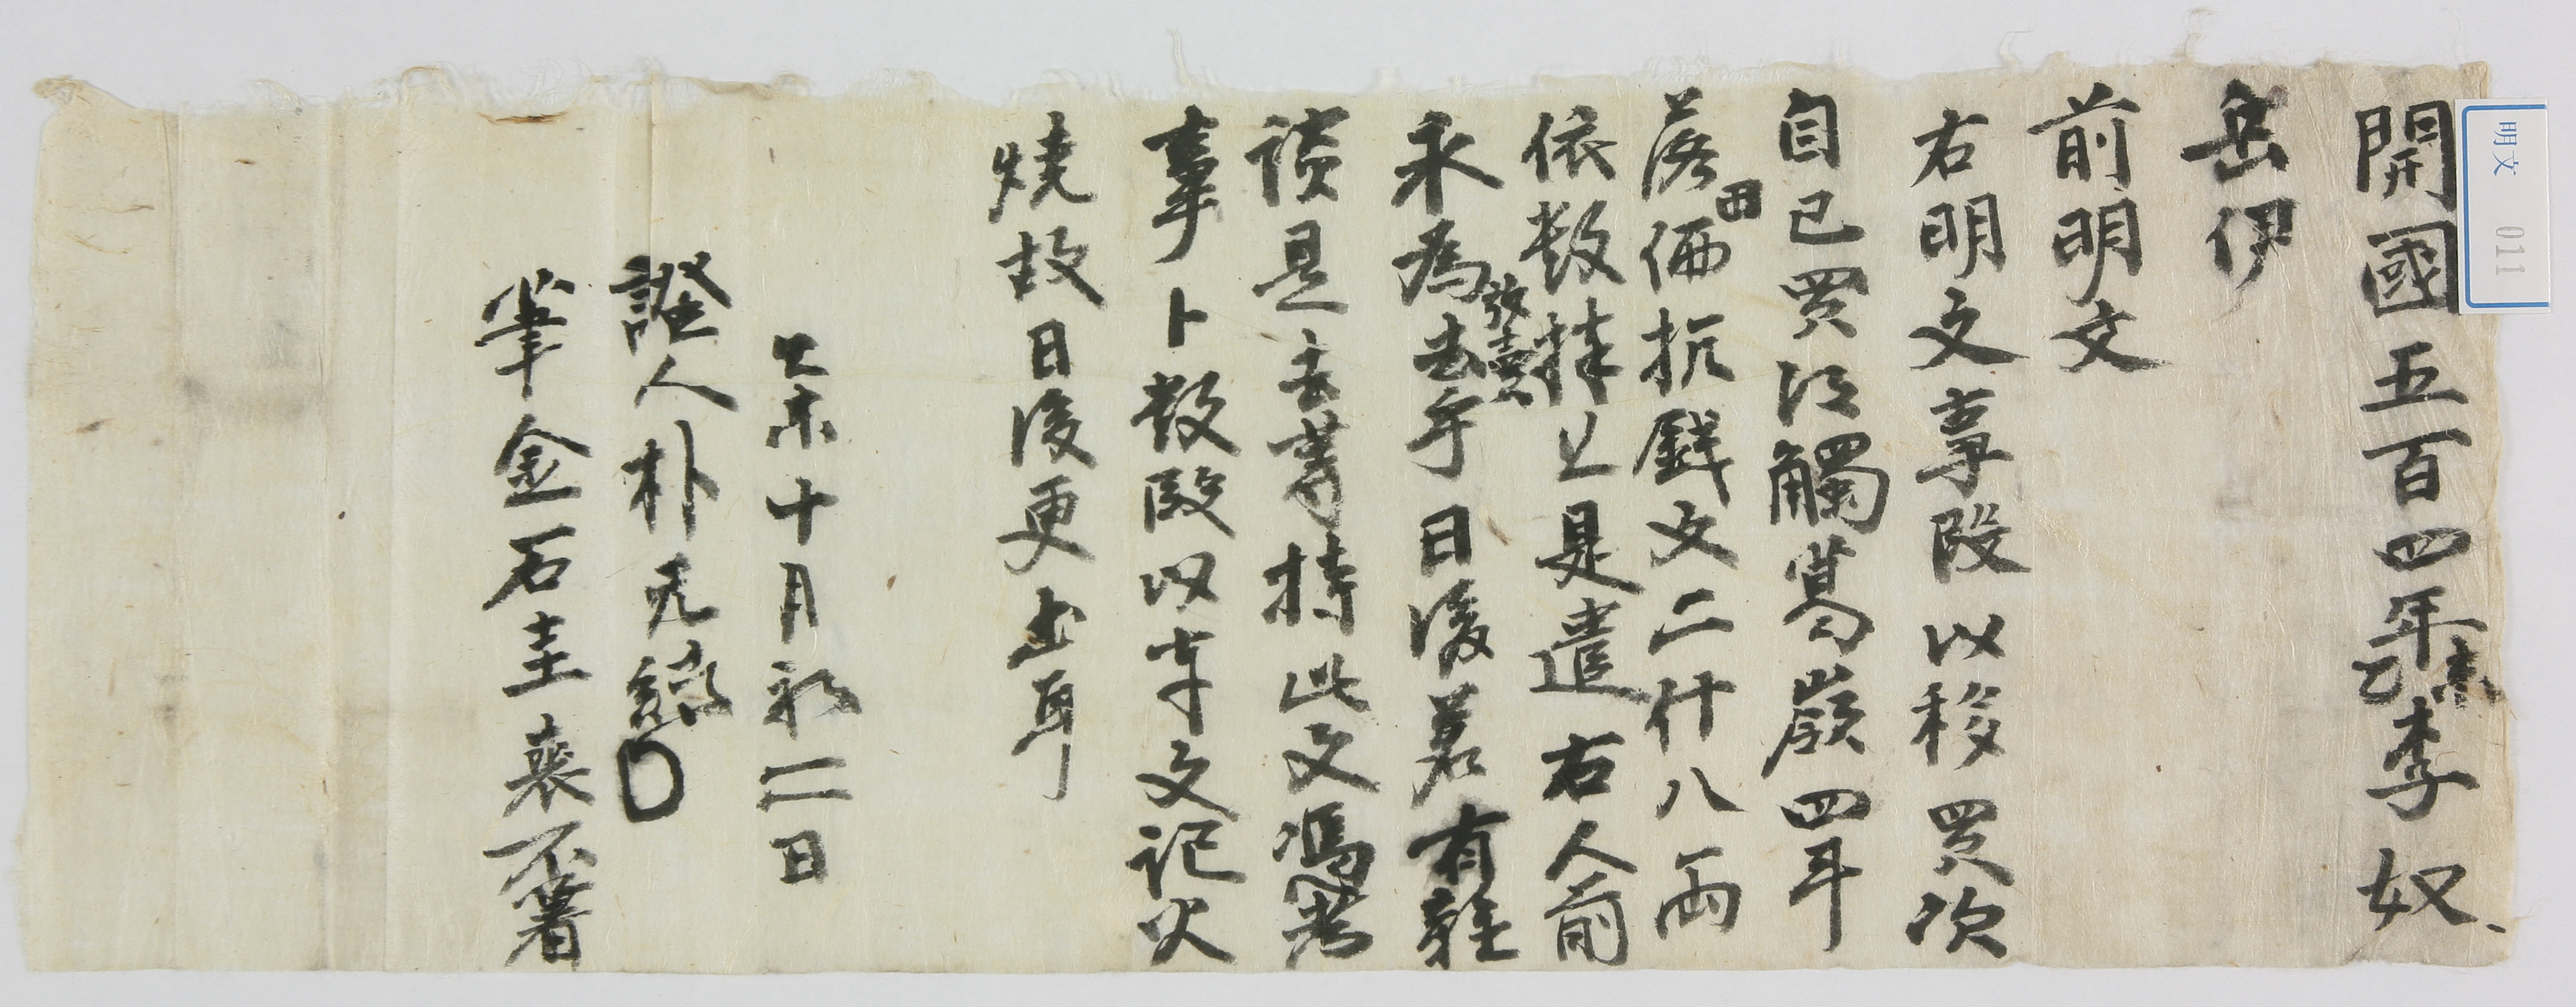 開國五百四年乙未李奴
岳伊
前明文
右明文事段以移買次
自己買江觸葛嶺四斗
落畓価折錢文二什八両
依数捧上是遣右人前
永為放賣去乎日後若有雜
談是去等持此文憑考
事卜数段以本文記火
燒故日後更出耳
乙未十月初二日
證人朴元
筆金石圭喪不着
明文 011